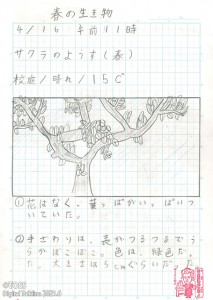 春の生き物
4/16 午前11時
サクラのようす(春)
校庭/晴れ/15C°
①花はなく、葉っぱがいっぱいつ
いていた。
②手ざわりは、表がつるつるでう
らがぼこぼこ。色は、緑色だっ
た。大きさは5cmぐらいだ
©TOSS
Digital Edition 2021.6